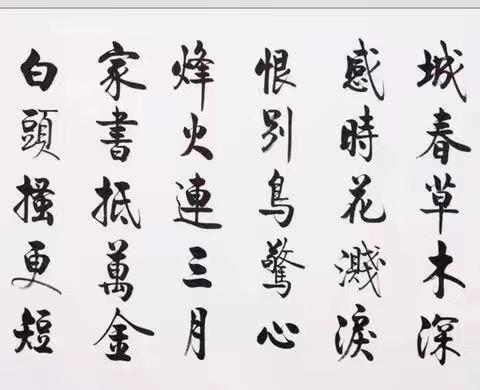 城春草木深
感時花濺淚
恨別鳥驚心
烽火連三月
家書抵萬金
白頭搔更短